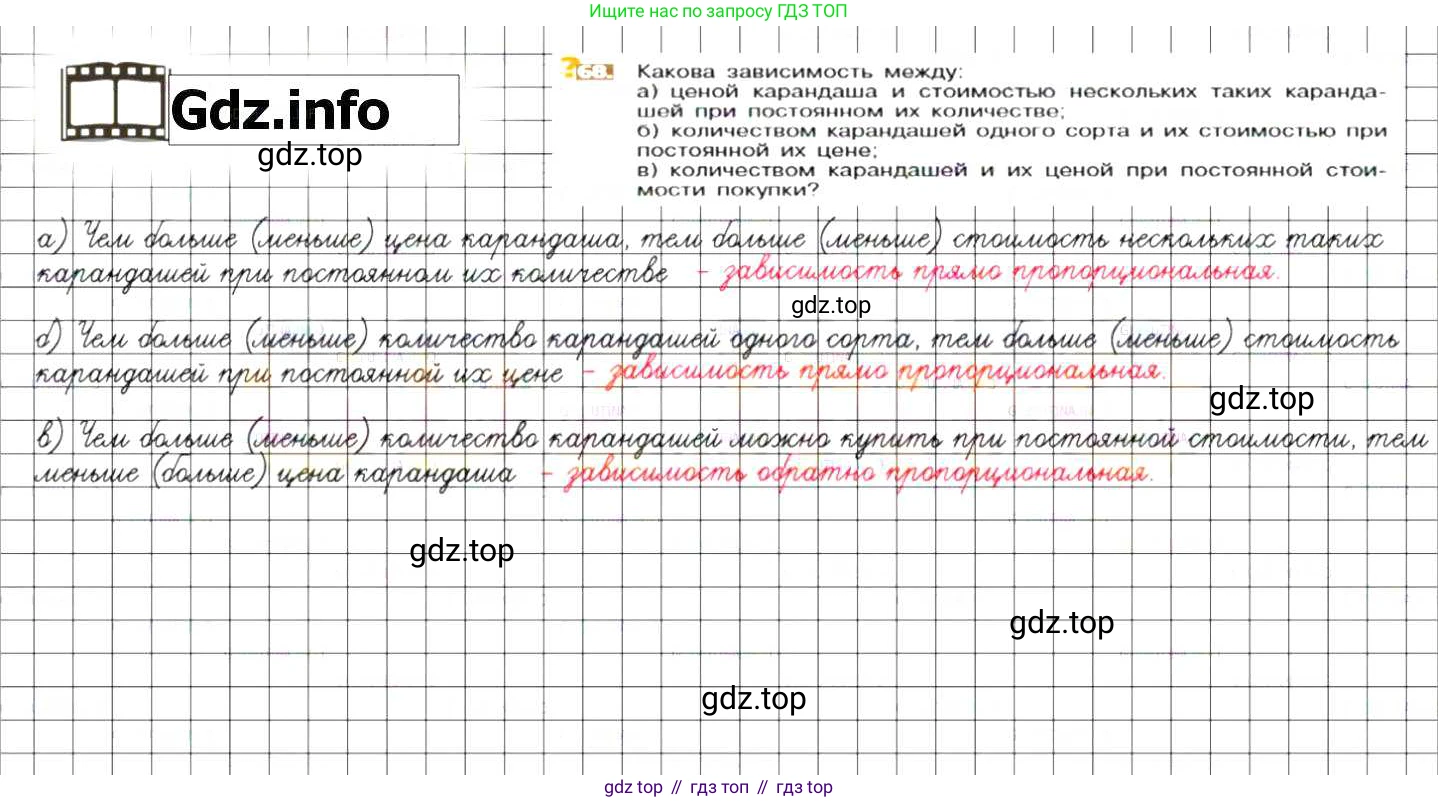 Ищите нас по запросу ГДЗ ТОП
Gdz.info
gdz.top
68. Какова зависимость между:
а) ценой карандаша и стоимостью нескольких таких каранда-
шей при постоянном их количестве;
б) количеством карандашей одного сорта и их стоимостью при
постоянной их цене;
в) количеством карандашей и их ценой при постоянной стои-
мости покупки?
а) Чем больше (меньше) цена карандаша, тем больше (меньше) стоимость нескольких таких
карандашей при постоянном их количестве - зависимость прямо пропорциональная.
gdz.top
б) Чем больше (меньше) количество карандашей одного сорта, тем больше (меньше) стоимость
карандашей при постоянной их цене - зависимость прямо пропорциональная.
gdz.top
в) Чем больше (меньше) количество карандашей можно купить при постоянной стоимости, тем
меньше (больше) цена карандаша - зависимость обратно пропорциональная.
gdz.top
gdz.top
gdz.top
gdz top // гдз топ // gdz top